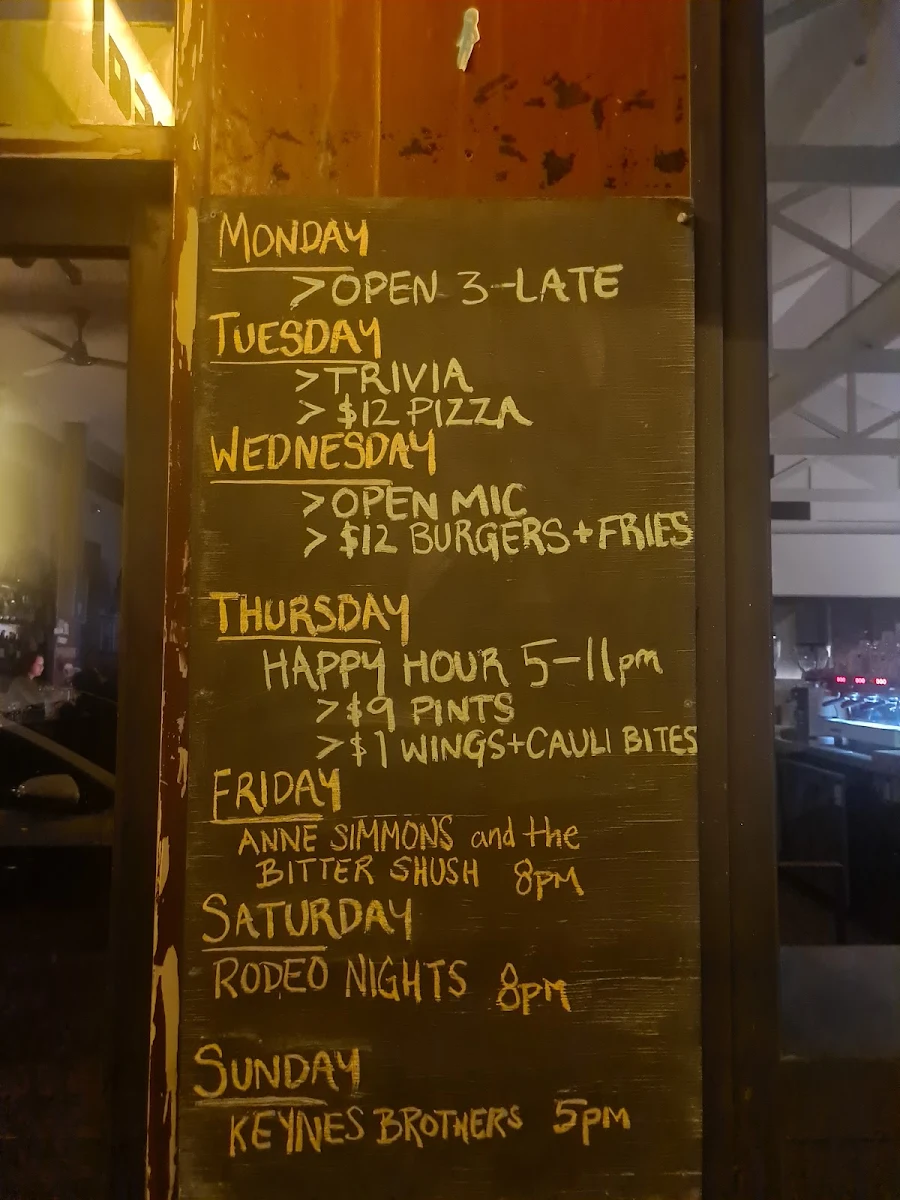 MONDAY
>OPEN 3-LATE
TUESDAY
>TRIVIA
> $12 PIZZA
WEDNESDAY
>OPEN MIC
> $12 BURGERS+FRIES
THURSDAY
HAPPY HOUR 5-11pm
>$9 PINTS
>$1 WINGS+CAULI BITES
FRIDAY
ANNE SIMMONS and the
BITTER SHUSH 8pm
SATURDAY
RODEO NIGHTS 8pm
SUNDAY
KEYNES BROTHERS 5pm